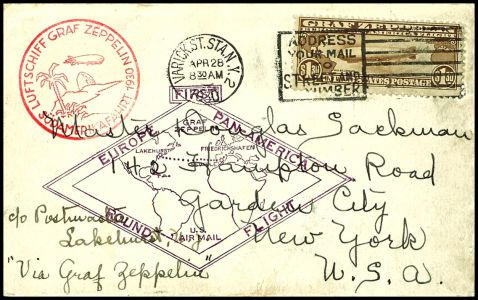 LUFTSCHIFF GRAF ZEPPELIN 1930
SÜDAMERIKAFAHRT
VARICK ST. STA. N.Y.
APR 28
8 30 AM
1930
ADDRESS
YOUR MAIL
TO
STREET AND
NUMBER
GRAF ZEPPELIN
UNITED STATES POSTAGE
$1.30
FIRST
EUROPE PAN-AMERICA
ROUND FLIGHT
GRAF
ZEPPELIN
LAKEHURST
FRIEDRICHSHAFEN
U.S.
AIR MAIL
Master Douglas Jackman
142 Hampton Road
Garden City
New York
U.S.A.
c/o Postmaster
Lakehurst, N.J.
"Via Graf Zeppelin"